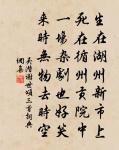 生在湖州新市上
死在循州貢院中
一場雜劇也好笑
來時無物去時空
吳潛謝世頌三首詞典
網集